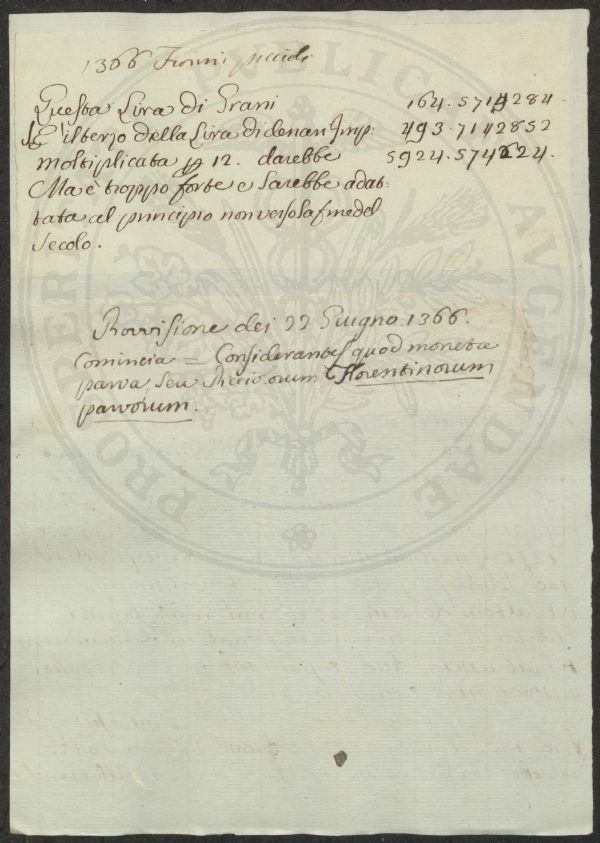 1366 Fiorini piccioli
Questa Lira di Grani 164.5714284
È il terzo della Lira di denari Imp: 493.7142852
moltiplicata p 12. darebbe 5924.574224.
Ma è troppo forte e sarebbe adat:
tata al principio non verso la fine del
secolo.
Provvisione dei 22 Giugno 1366.
Comincia = Considerantes quod moneta
parva seu Picciolorum Florentinorum
parvorum.
PUBLICAE
PROSPERI
AVGENDAE